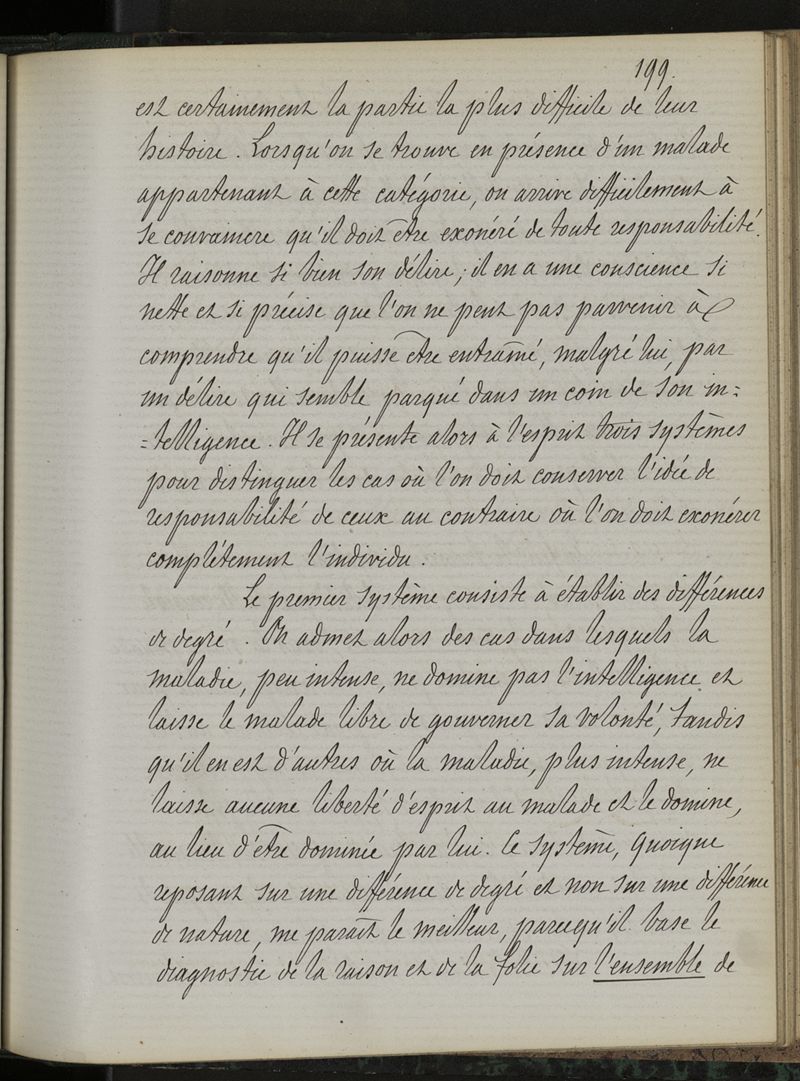 199.
est certainement la partie la plus difficile de leur
histoire. Lorsqu'on se trouve en présence d'un malade
appartenant à cette catégorie, on arrive difficilement à
se convaincre qu'il doit être exonéré de toute responsabilité.
Il raisonne si bien son délire; il en a une conscience si
nette et si précise que l'on ne peut pas parvenir à
comprendre qu'il puisse être entraîné, malgré lui, par
un délire qui semble parqué dans un coin de son in=
=telligence. Il se présente alors à l'esprit trois systèmes
pour distinguer les cas où l'on doit conserver l'idée de
responsabilité de ceux au contraire où l'on doit exonérer
complètement l'individu.
Le premier système consiste à établir des différences
de degré. On admet alors des cas dans lesquels la
maladie, peu intense, ne domine pas l'intelligence et
laisse le malade libre de gouverner sa volonté, tandis
qu'il en est d'autres où la maladie, plus intense, ne
laisse aucune liberté d'esprit au malade et le domine,
au lieu d'être dominée par lui. Ce système, quoique
reposant sur une différence de degré et non sur une différence
de nature, me paraît le meilleur, parcequ'il base le
diagnostic de la raison et de la folie sur l'ensemble de